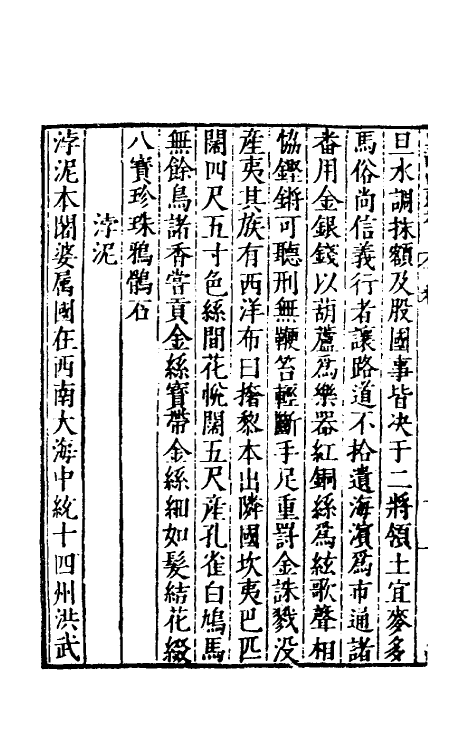 日水調抹額及股國事皆决于二將領土宜麥多
馬俗尚信義行者讓路道不拾遺海濱爲市通諸
畨用金銀錢以葫蘆爲樂器紅銅絲爲絃歌聲相
恊鏗鏘可聽刑無鞭笞輕斷手足重罰金誅戮没
產夷其族有西洋布曰撦黎本出隣國坎夷巴匹
闊四尺五寸色絲間花帨闊五尺產孔雀白鳩馬
無餘鳥諸香嘗貢金絲寶帶金絲細如髪結花綴
八寶珍珠鴉鶻石
浡泥
浡泥本闍婆属國在西南大海中統十四州洪武